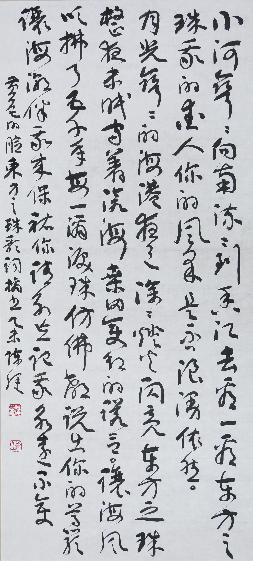 小河弯〻向南流〻到香江去看一看东方之
珠我的爱人你的风采是否浪漫依然
月儿弯〻的海港夜色深〻灯火闪亮东方之珠
整夜未眠守着沧海桑田变幻的诺言让海风
吹拂了五千年每一滴泪珠仿佛都说出你的尊严
让海潮伴我来保佑你请别忘记我永远不变
黄色的脸东方之珠歌词摘书乙未陈